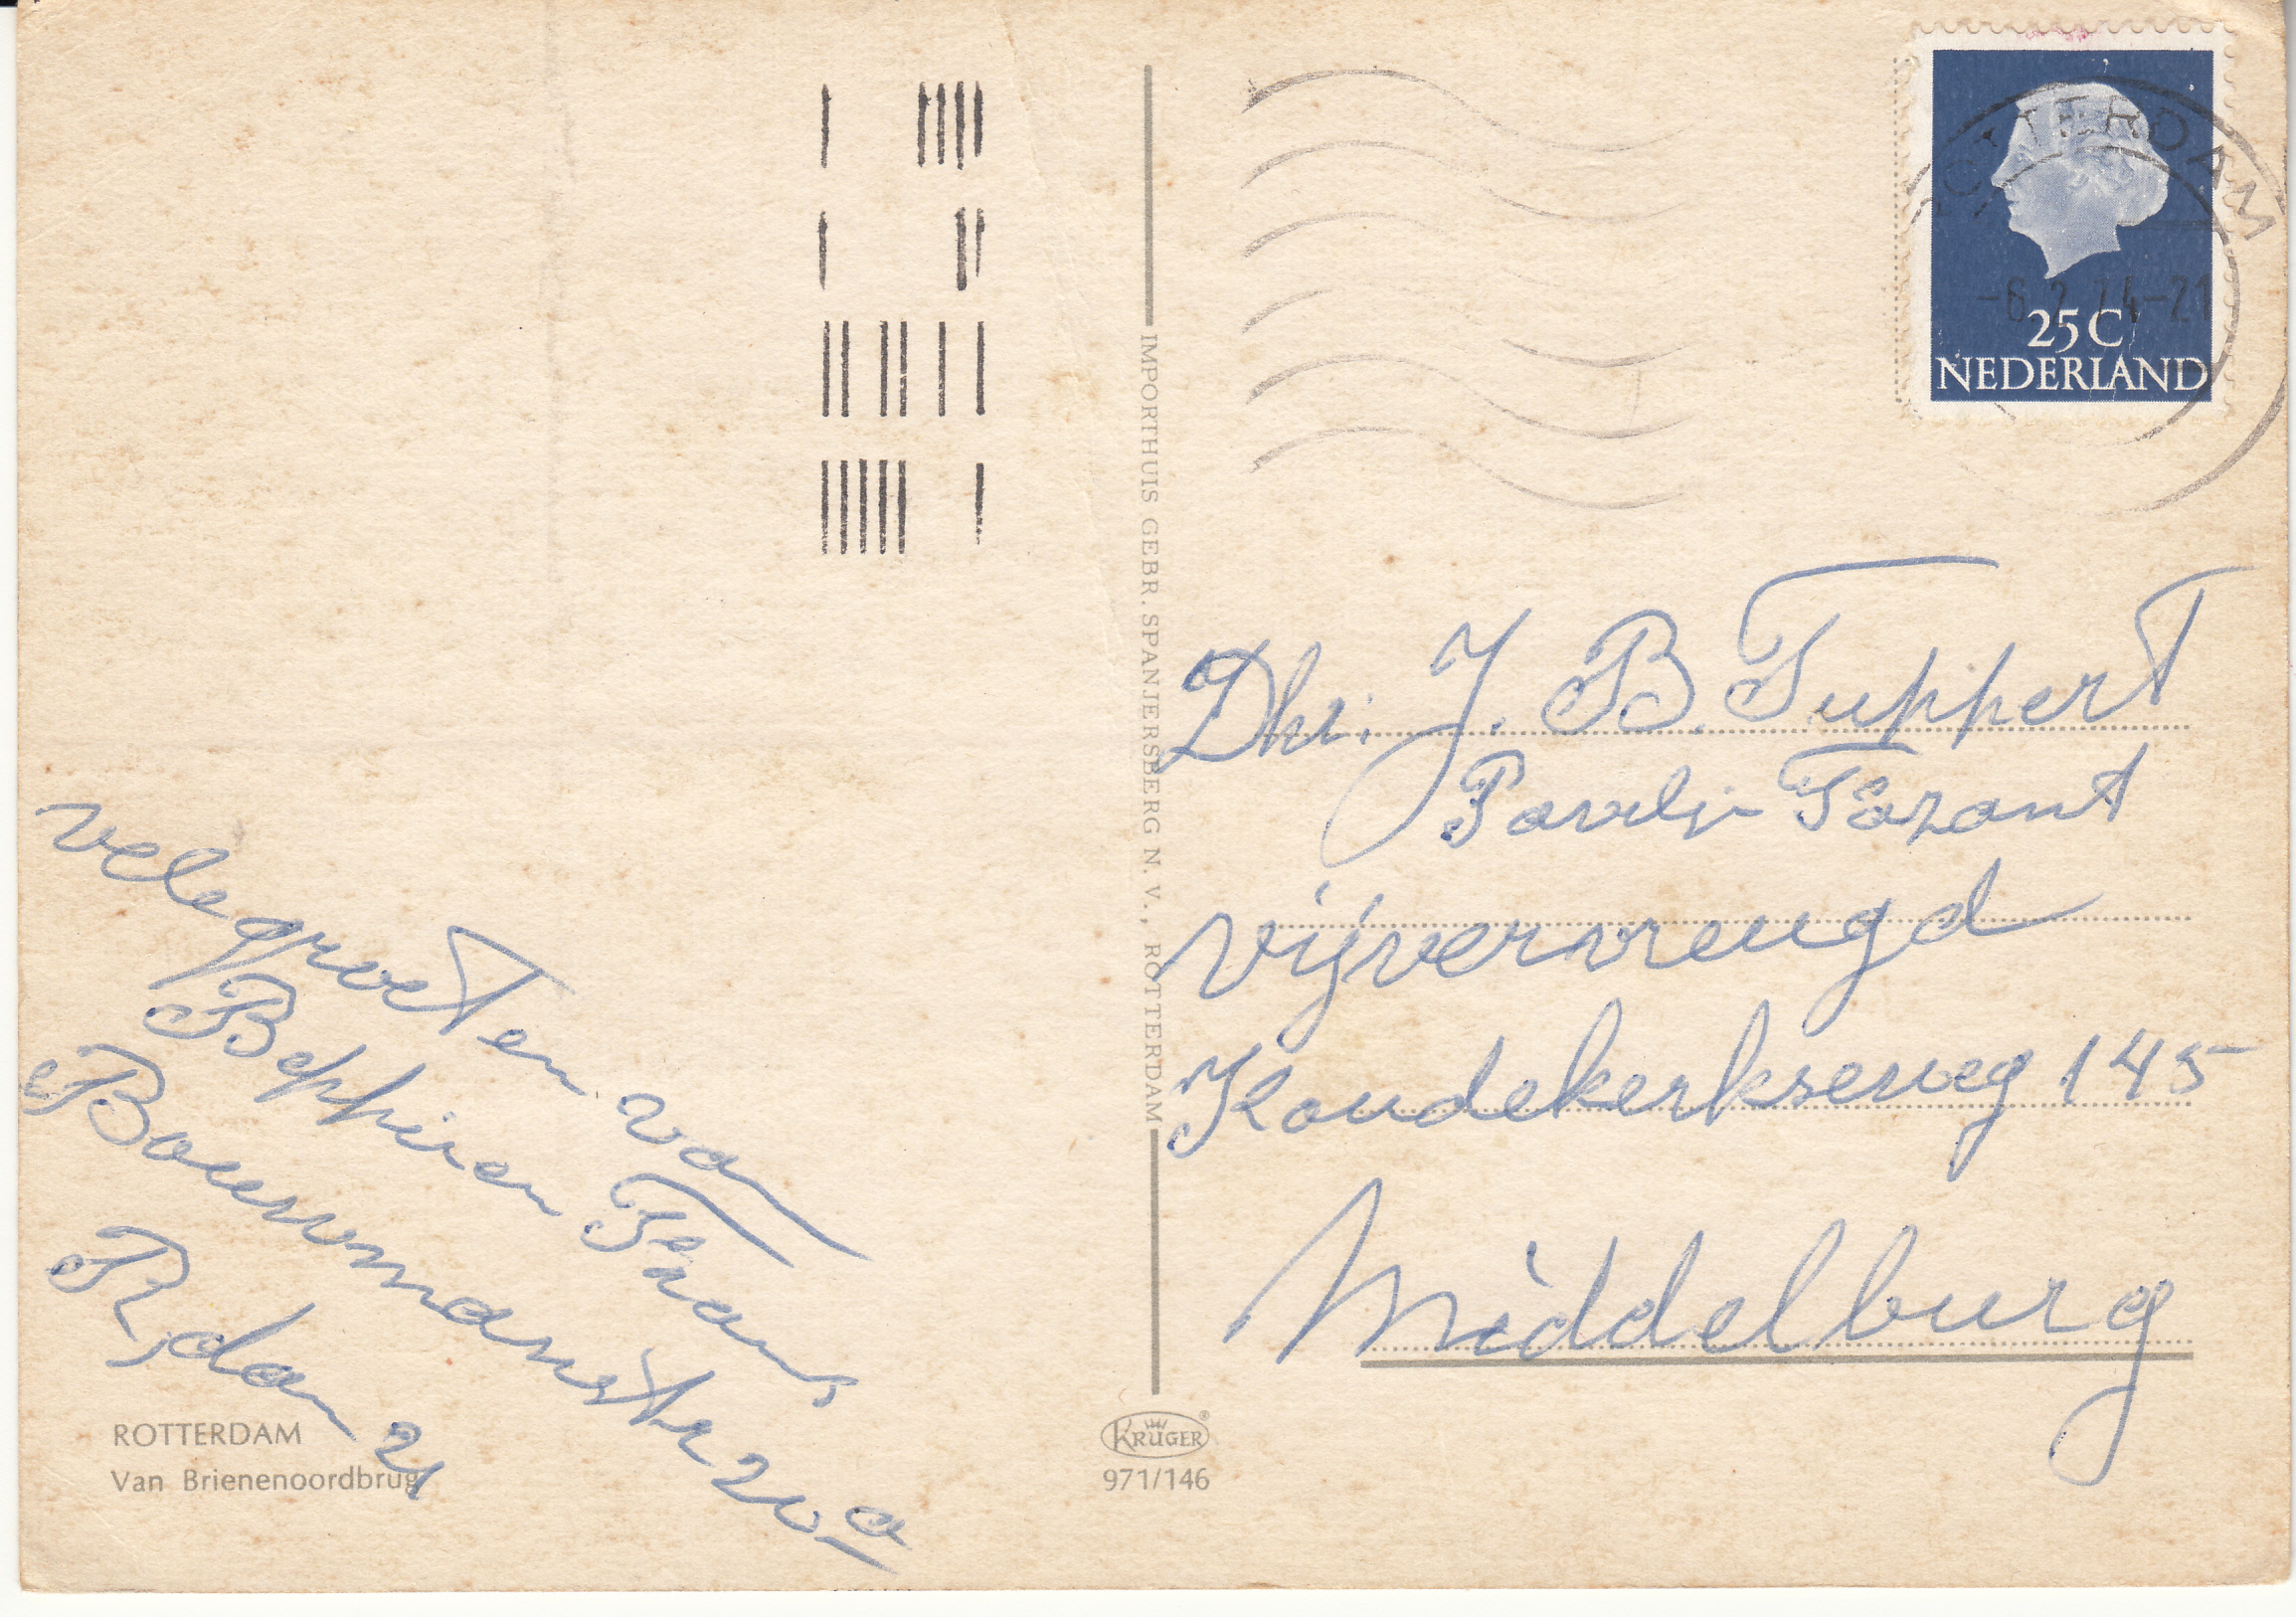 velegroeten van
Beppie en Frans
Bouwmanstr 20 a
R,dam 21
ROTTERDAM
Van Brienenoordbrug
IMPORTHUIS GEBR. SPANJERSBERG N. V., ROTTERDAM
KRÜGER
971/146
ROTTERDAM
-6.2.74-21
25 C
NEDERLAND
Dhr. J. B. Tuppert
vijvervreugd
Koudekerkseweg 145
Middelburg